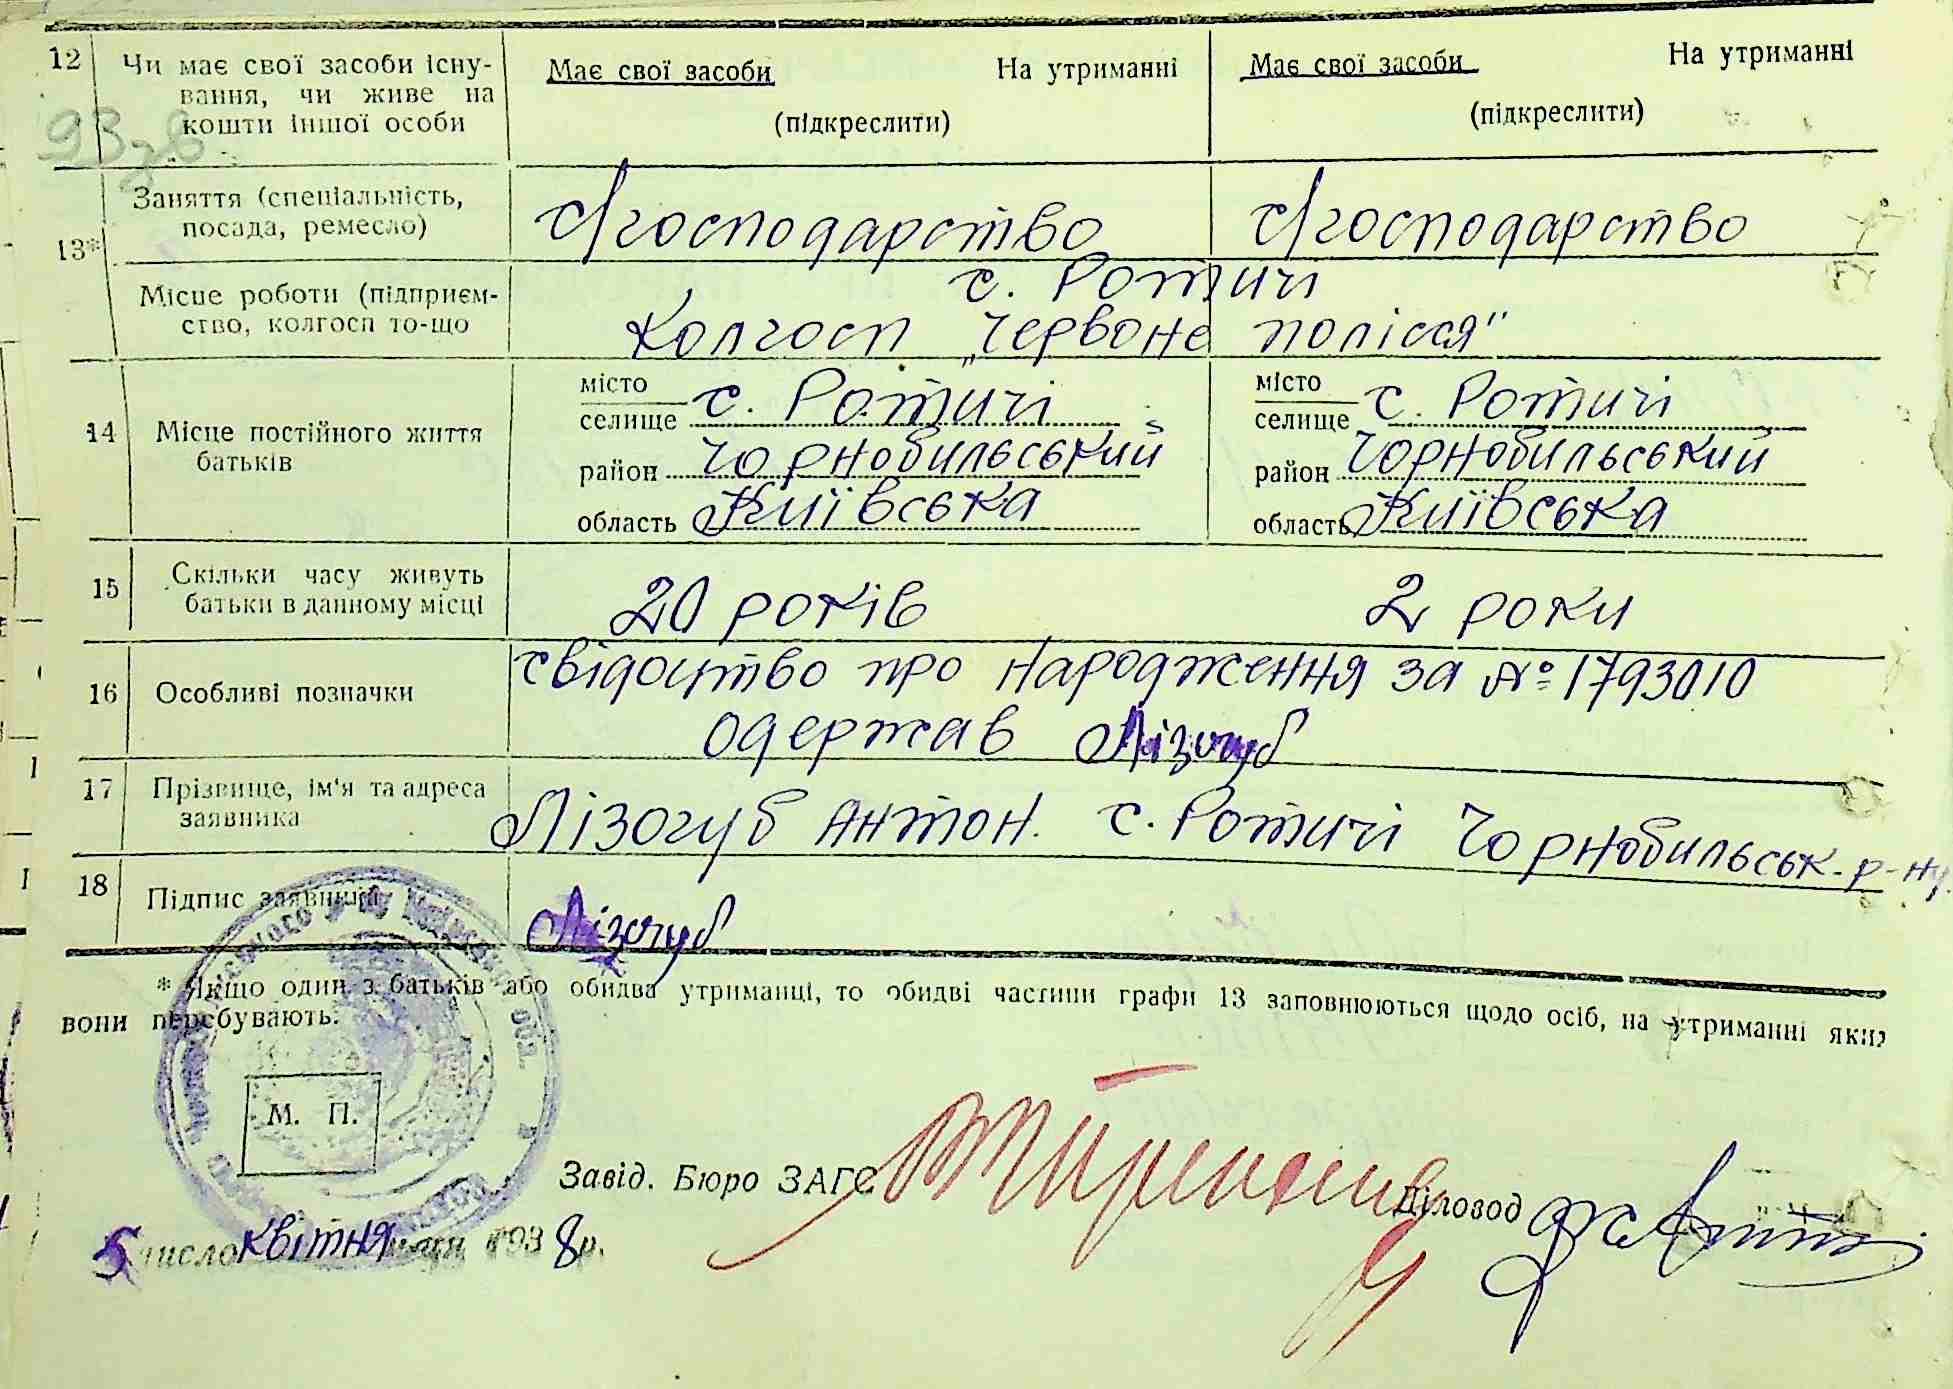 12 Чи має свої засоби існу- Має свої засоби На утриманні Має свої засоби На утриманні
вання, чи живе на
кошти іншої особи (підкреслити) (підкреслити)
93
Заняття (спеціальність, с/господарство с/господарство
посада, ремесло)
13*
с. Ротичі
Місце роботи (підприєм-
ство, колгосп то-що Колгосп „Червоне полісся"
місто місто
селище с. Ротичі селище с. Ротичі
14 Місце постійного життя
батьків район Чорнобильський район Чорнобильський
область Київська область Київська
15 Скільки часу живуть
батьки в данному місці 20 років 2 роки
свідоцтво про народження за № 1793010
16 Особливі позначки
одержав Лізогуб
17 Прізвище, ім'я та адреса
заявника Лізогуб Антон. с. Ротичі Чорнобильськ. р-ну.
18 Підпис заявника Лізогуб
* Якщо один з батьків або обидва утриманці, то обидві частини графи 13 заповнюються щодо осіб, на утриманні яких
вони перебувають.
М. П.
Завід. Бюро ЗАГС Діловод
5 число квітня 1938 р.